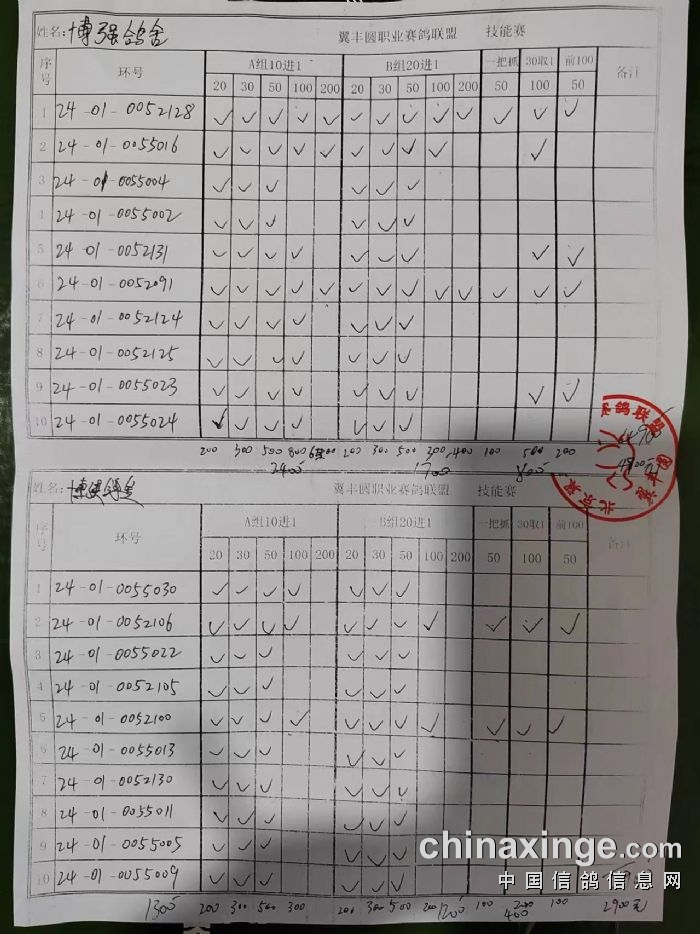 姓名: 博强鸽舍 翼丰圆职业赛鸽联盟 技能赛
序号 环号 A组10进1 B组20进1 一把抓 30取1 前100 备注
20 30 50 100 200 20 30 50 100 200 50 100 50
1 24-01-0052128 ✓ ✓ ✓ ✓ ✓ ✓ ✓ ✓ ✓ ✓ ✓ ✓ ✓
2 24-01-0055016 ✓ ✓ ✓ ✓ ✓ ✓ ✓ ✓ ✓ ✓
3 24-01-0055004 ✓ ✓ ✓ ✓ ✓ ✓
1 24-01-0055002 ✓ ✓ ✓ ✓ ✓ ✓
5 24-01-0052131 ✓ ✓ ✓ ✓ ✓ ✓ ✓ ✓ ✓
6 24-01-0052091 ✓ ✓ ✓ ✓ ✓ ✓ ✓ ✓ ✓ ✓ ✓ ✓ ✓
7 24-01-0052124 ✓ ✓ ✓ ✓ ✓ ✓ ✓
8 24-01-0052125 ✓ ✓ ✓ ✓ ✓ ✓ ✓
9 24-01-0055023 ✓ ✓ ✓ ✓ ✓ ✓ ✓ ✓ ✓
10 24-01-0055024 ✓ ✓ ✓ ✓ ✓ ✓ ✓
200 300 500 800 200 300 500 300 400 100 500 200
2400 1700 800
4900元
鸽联盟
北京
姓名: 翼丰圆职业赛鸽联盟 技能赛
序号 环号 A组10进1 B组20进1 一把抓 30取1 前100 备注
20 30 50 100 200 20 30 50 100 200 50 100 50
1 24-01-0055030 ✓ ✓ ✓ ✓ ✓ ✓ ✓
2 24-01-0052106 ✓ ✓ ✓ ✓ ✓ ✓ ✓ ✓ ✓ ✓ ✓
3 24-01-0055022 ✓ ✓ ✓ ✓ ✓ ✓
4 24-01-0052105 ✓ ✓ ✓ ✓ ✓ ✓
5 24-01-0052100 ✓ ✓ ✓ ✓ ✓ ✓ ✓ ✓ ✓ ✓ ✓
6 24-01-0055013 ✓ ✓ ✓ ✓ ✓ ✓
7 24-01-0052130 ✓ ✓ ✓ ✓ ✓ ✓
8 24-01-0055011 ✓ ✓ ✓ ✓ ✓ ✓
9 24-01-0055005 ✓ ✓ ✓ ✓ ✓ ✓
10 24-01-0055009 ✓ ✓ ✓ ✓ ✓ ✓
1300 200 300 500 300 200 300 500 200 1200 100 200 100 2900元
400
chinaxinge.com
中国信鸽信息网